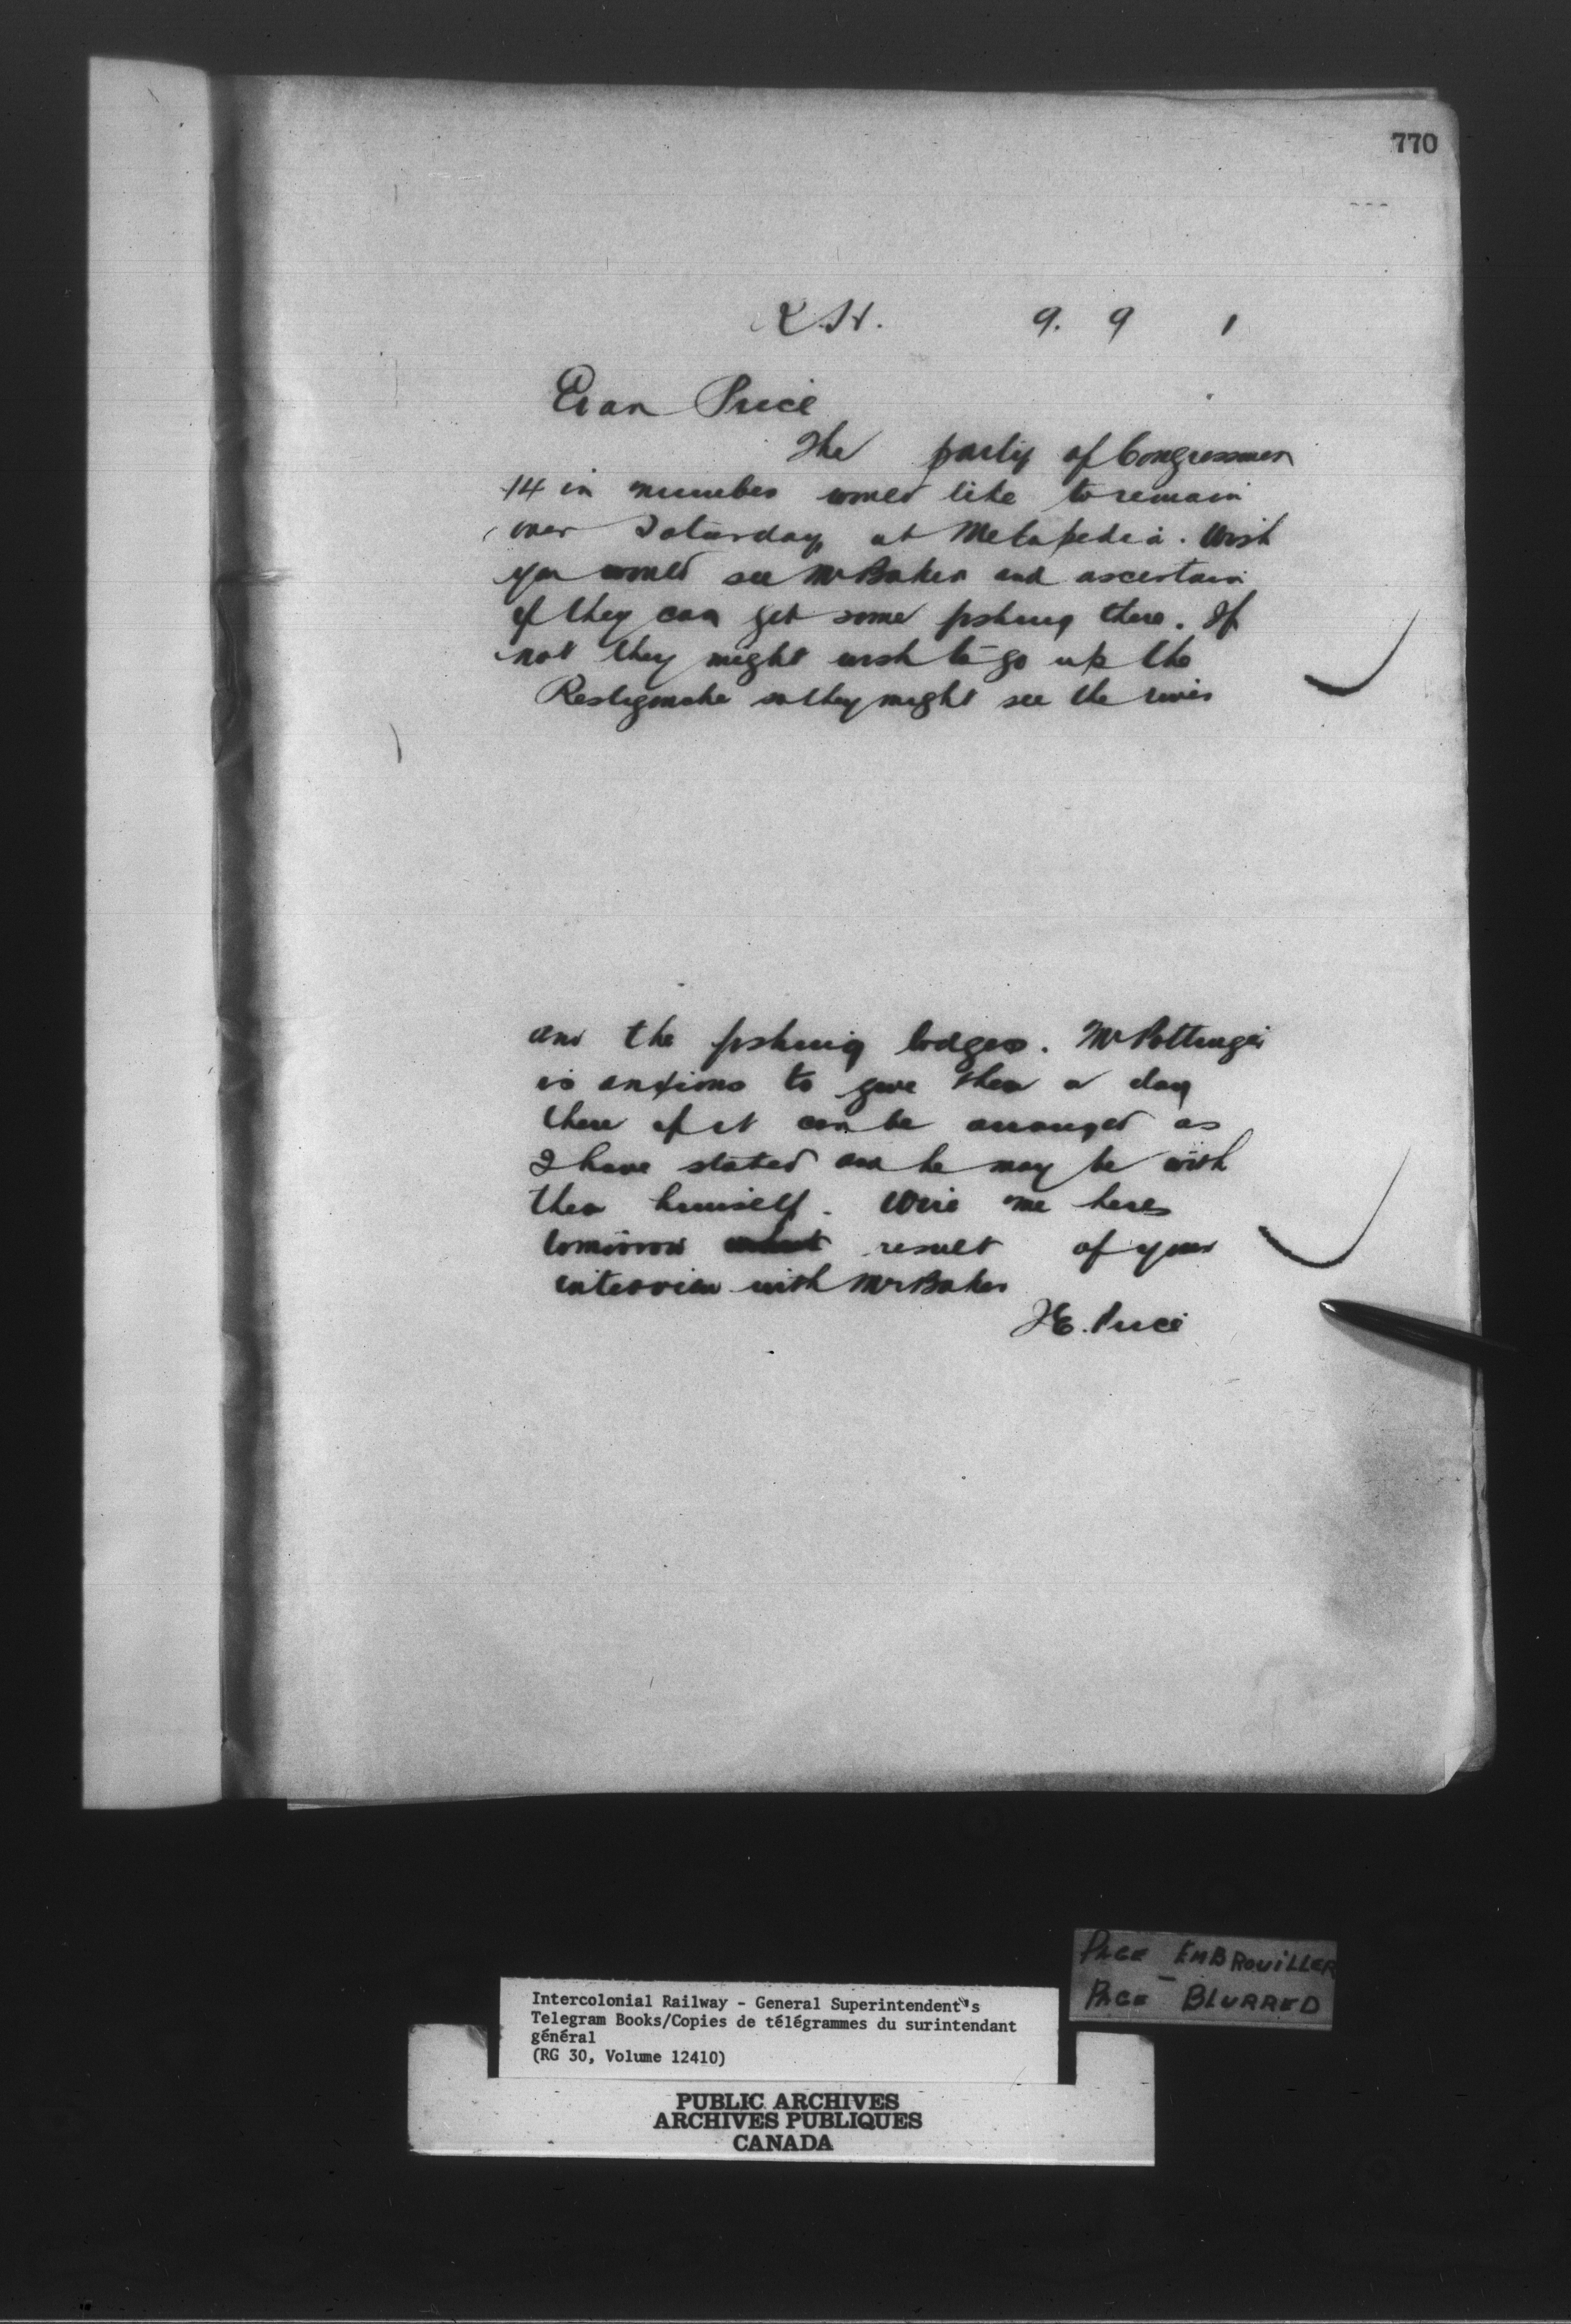 770
K.H. 9. 9 1
Evan Price
The party of Congressmen
14 in number would like to remain
over Saturday at Metapedia. Wish
you would see Mr Baker and ascertain
if they can get some fishing there. If
not they might wish to go up the
Restigouche so they might see the river
and the fishing lodges. Mr Pottinger
is anxious to give them a day
there if it can be arranged as
I have stated and he may be with
them himself. Wire me here
tomorrow result of your
interview with Mr Baker
J.E. Price
PAGE EMBROUILLER
PAGE - BLURRED
Intercolonial Railway - General Superintendent's
Telegram Books/Copies de télégrammes du surintendant
général
(RG 30, Volume 12410)
PUBLIC ARCHIVES
ARCHIVES PUBLIQUES
CANADA